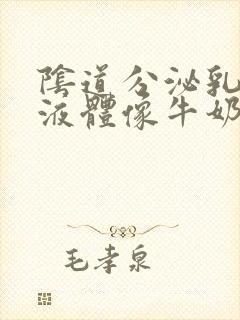 陰道分泌乳
液體像牛奶
毛孝泉